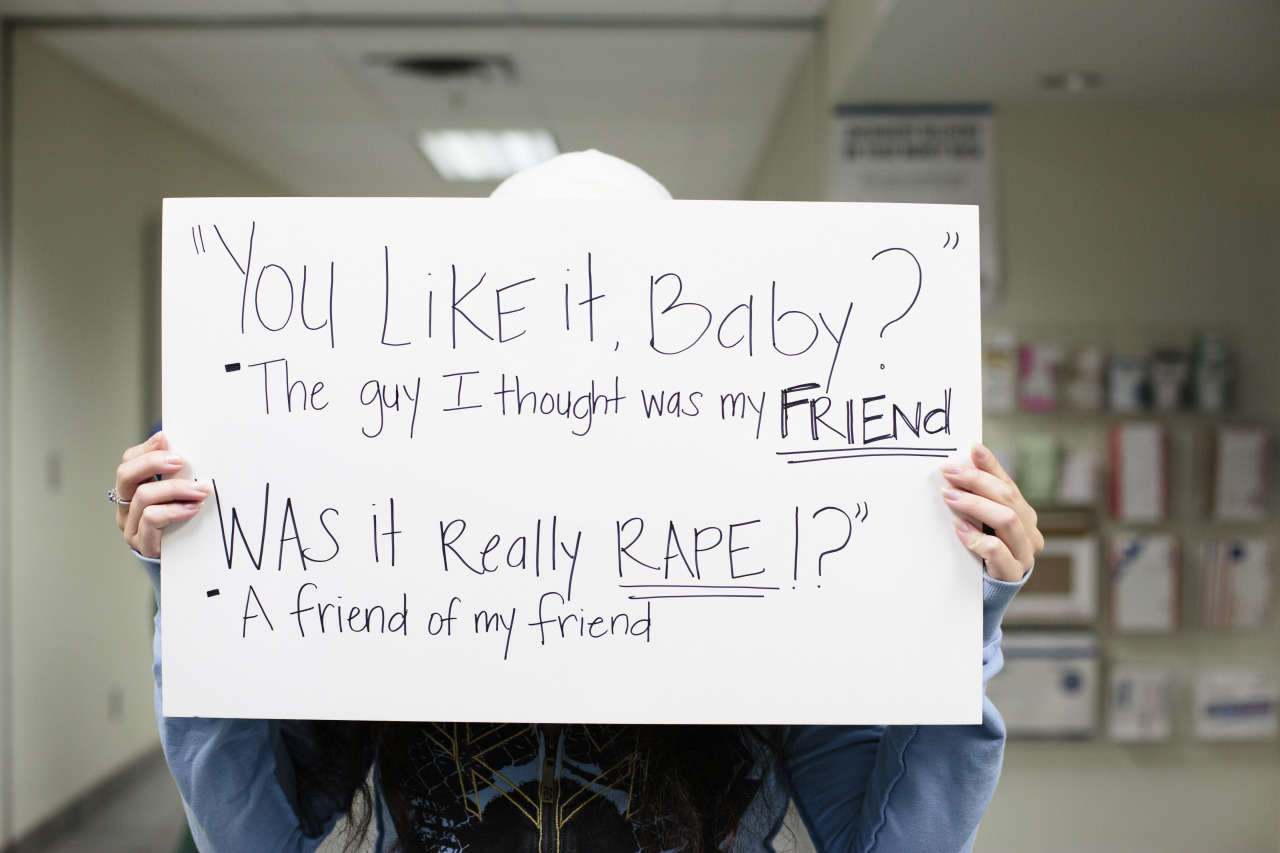 "You Like it, Baby?"
- The guy I thought was my FRIENd
WAS it Really RAPE!?"
- A friend of my friend